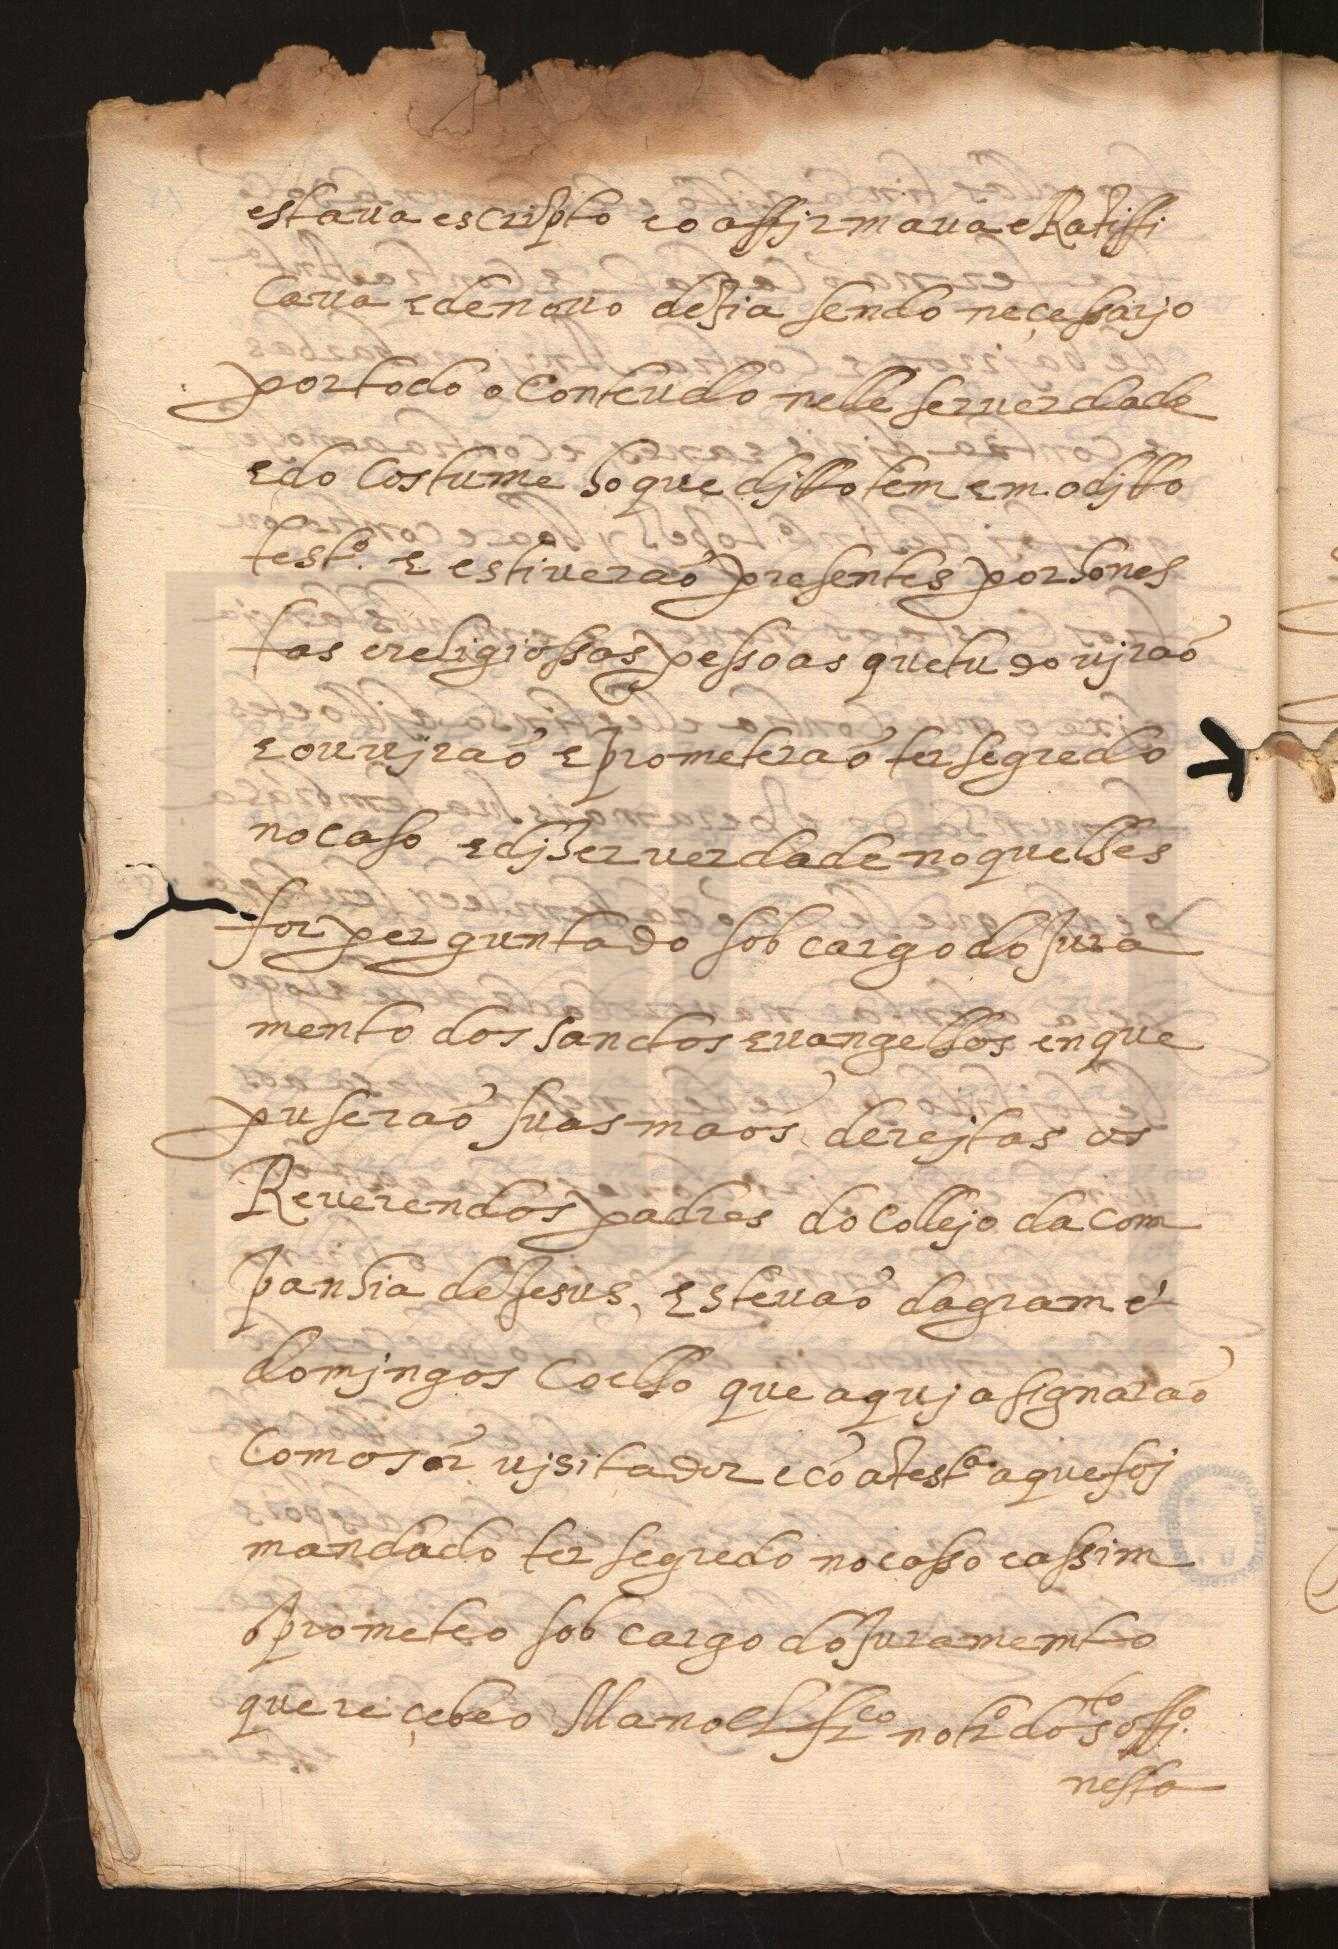 estaua escripto e o affirmaua e Ratiffi
caua e de nouo dezia sendo neçessario
por todo o conteudo nelle ser verdade
e do costume ho que djtto tem em o djtto
test.º e estiuerão presentes por hones
tas e religiossas pessoas que tudo vjrão
e ouujrão e prometerão ter segredo
no caso e djzer verdade no que lhes
for perguntado sob cargo do Jura
mento dos sanctos euangelhos en que
puserão suas maos derejtas os
Reuerendos padres do collejo da com
panhia de Jesus, Esteuão da gram e
domjngos Coelho que aquj asignarão
com o sõr vjsitador e cõ a test.ª a que foj
mandado ter segredo no casso e assim
o prometeo sob cargo do Juramemto
que reçebeo Manoel fr.co not.º do s.to offi.º
nesta